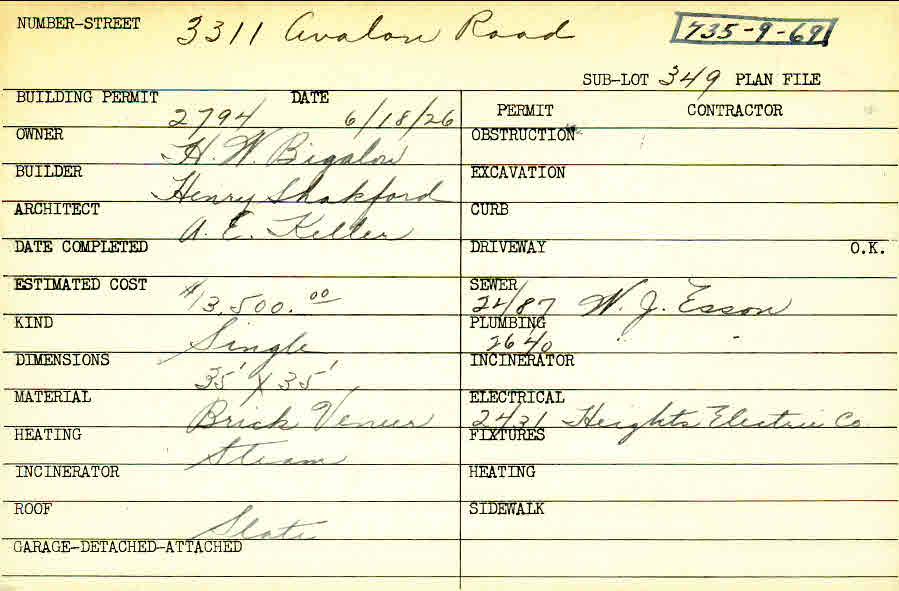 NUMBER-STREET 3311 Avalon Road 735-9-69
SUB-LOT 349 PLAN FILE
BUILDING PERMIT 2794 DATE 6/18/26
OWNER H. W. Bigalow
BUILDER Henry Shakford
ARCHITECT A. E. Keller
DATE COMPLETED
ESTIMATED COST $13,500.00
KIND Single
DIMENSIONS 35' X 35'
MATERIAL Brick Veneer
HEATING Steam
INCINERATOR
ROOF Slate
GARAGE-DETACHED-ATTACHED
PERMIT CONTRACTOR
OBSTRUCTION
EXCAVATION
CURB
DRIVEWAY O.K.
SEWER 2187 W. J. Esson
PLUMBING 2640 " "
INCINERATOR
ELECTRICAL 2431 Heights Electric Co.
FIXTURES
HEATING
SIDEWALK